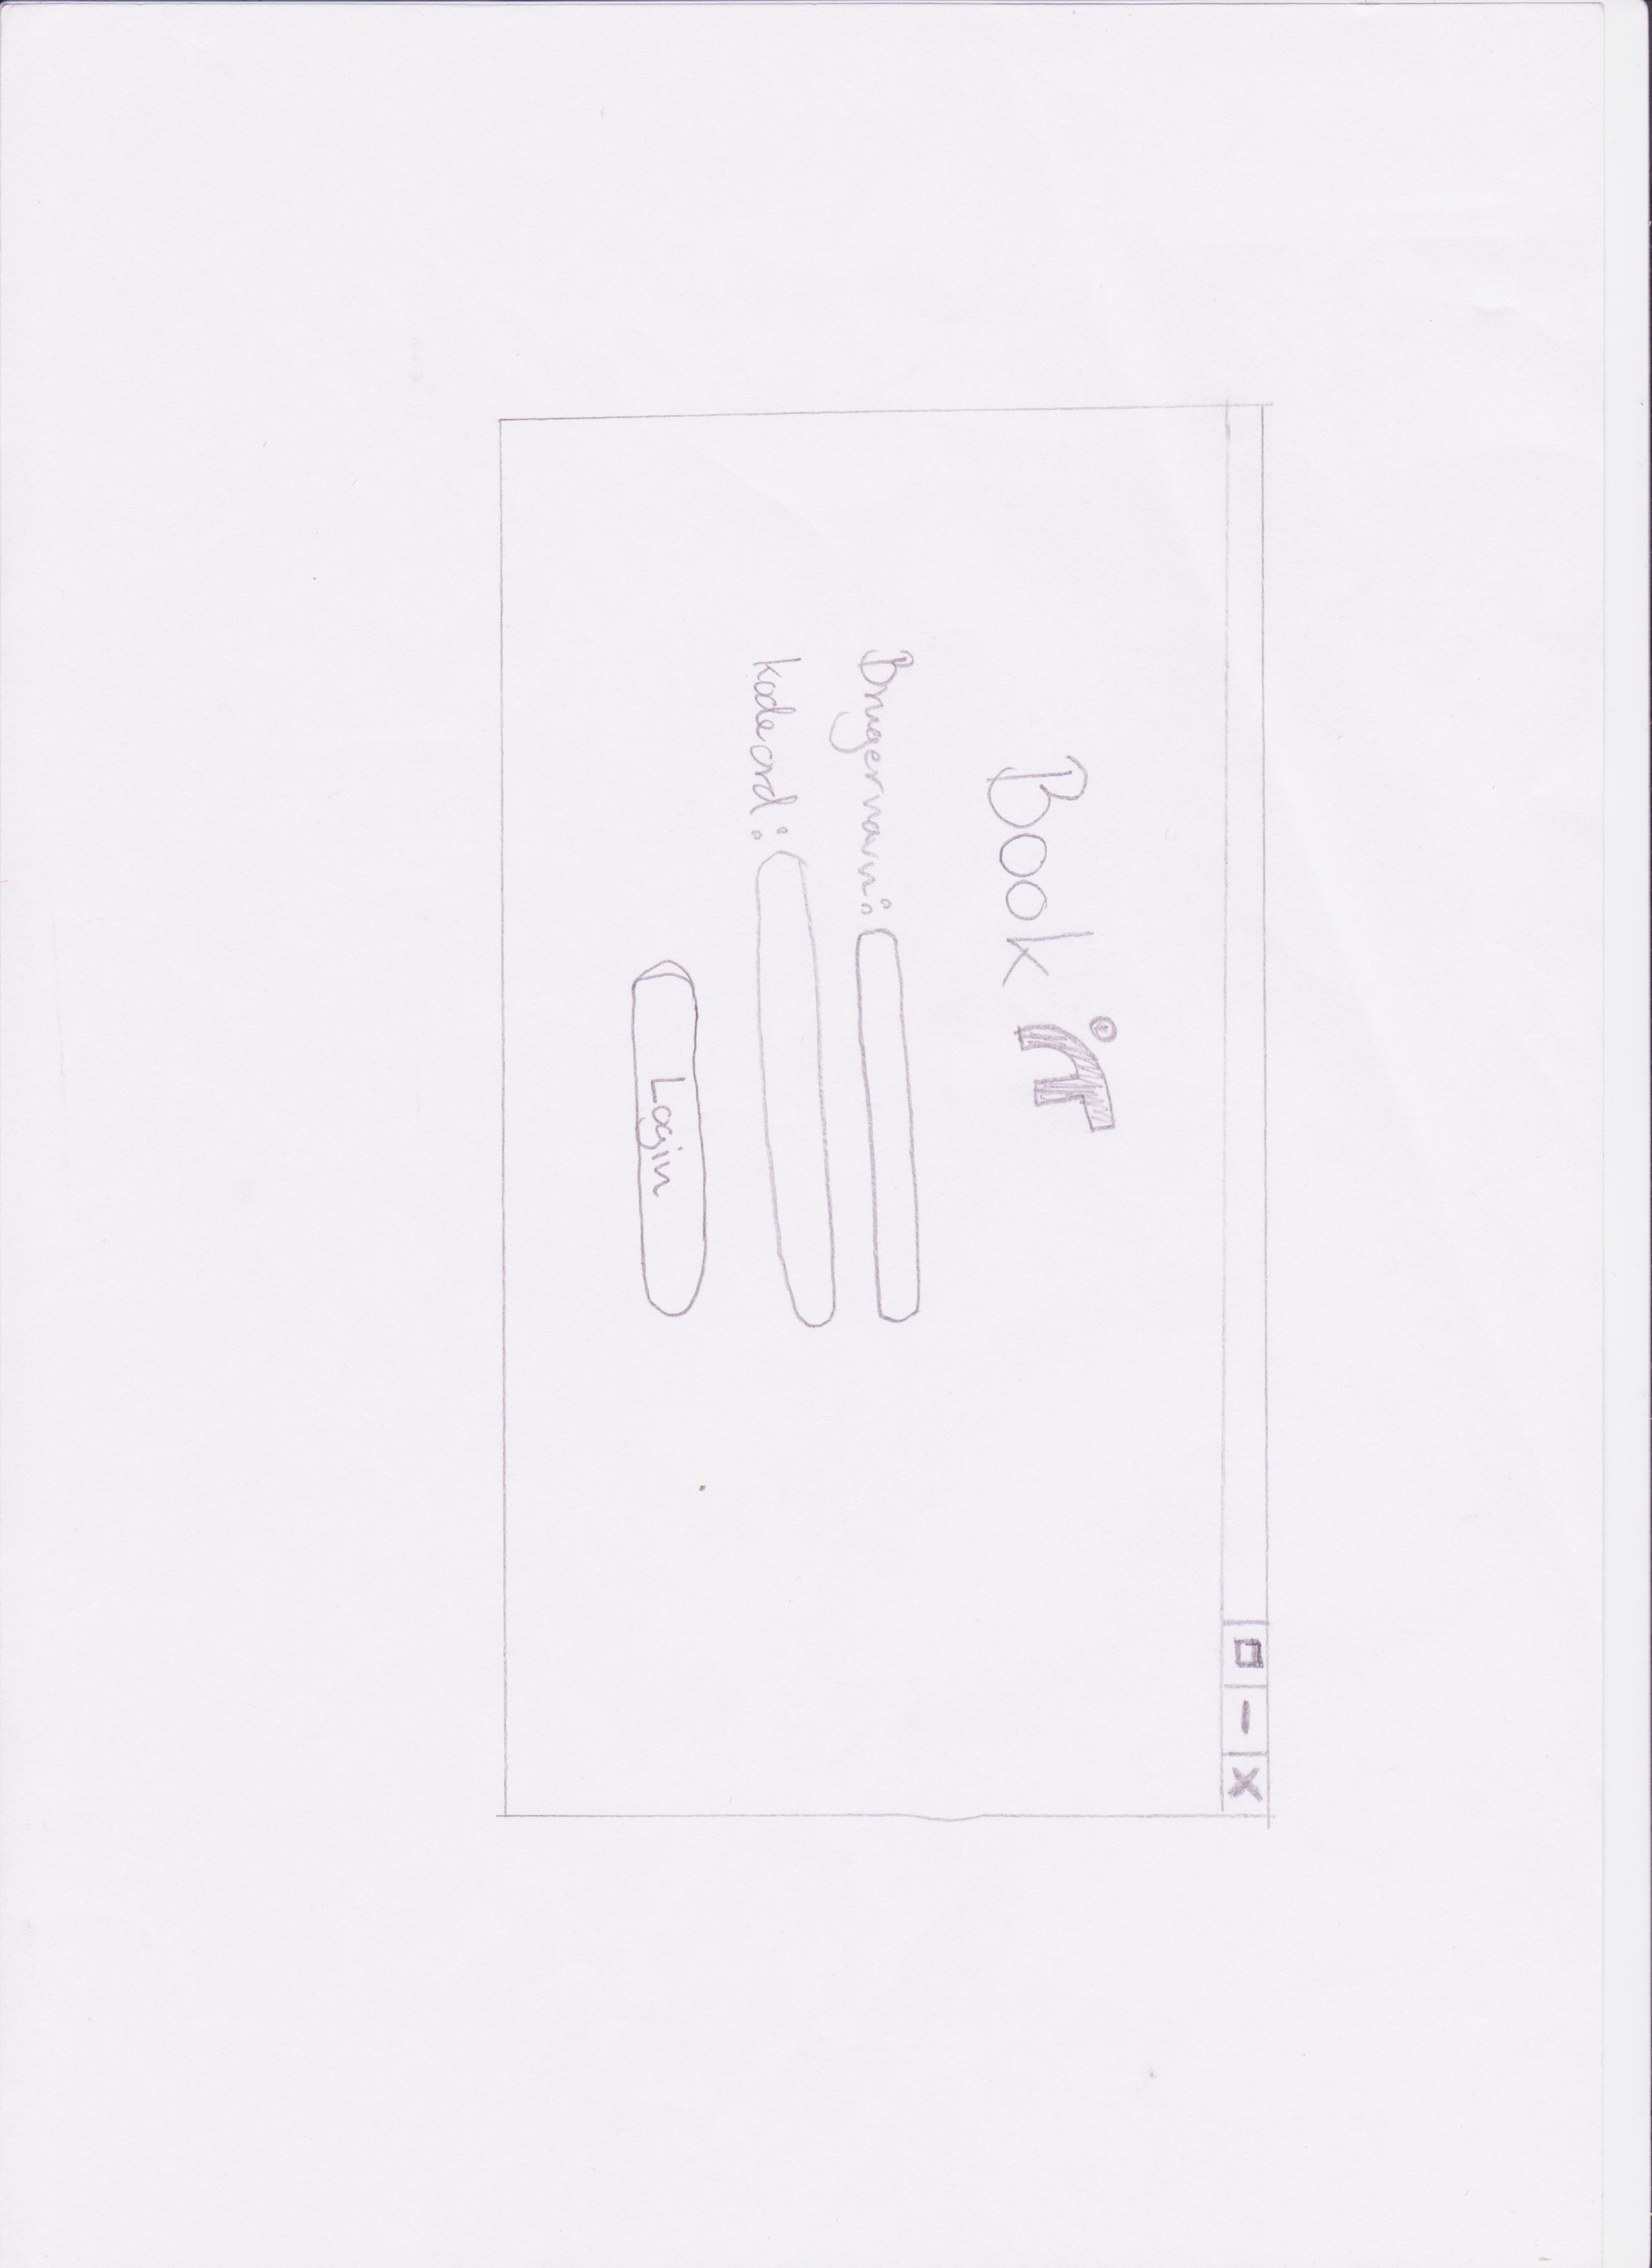 Book it
Brugernavn:
kodeord:
Login